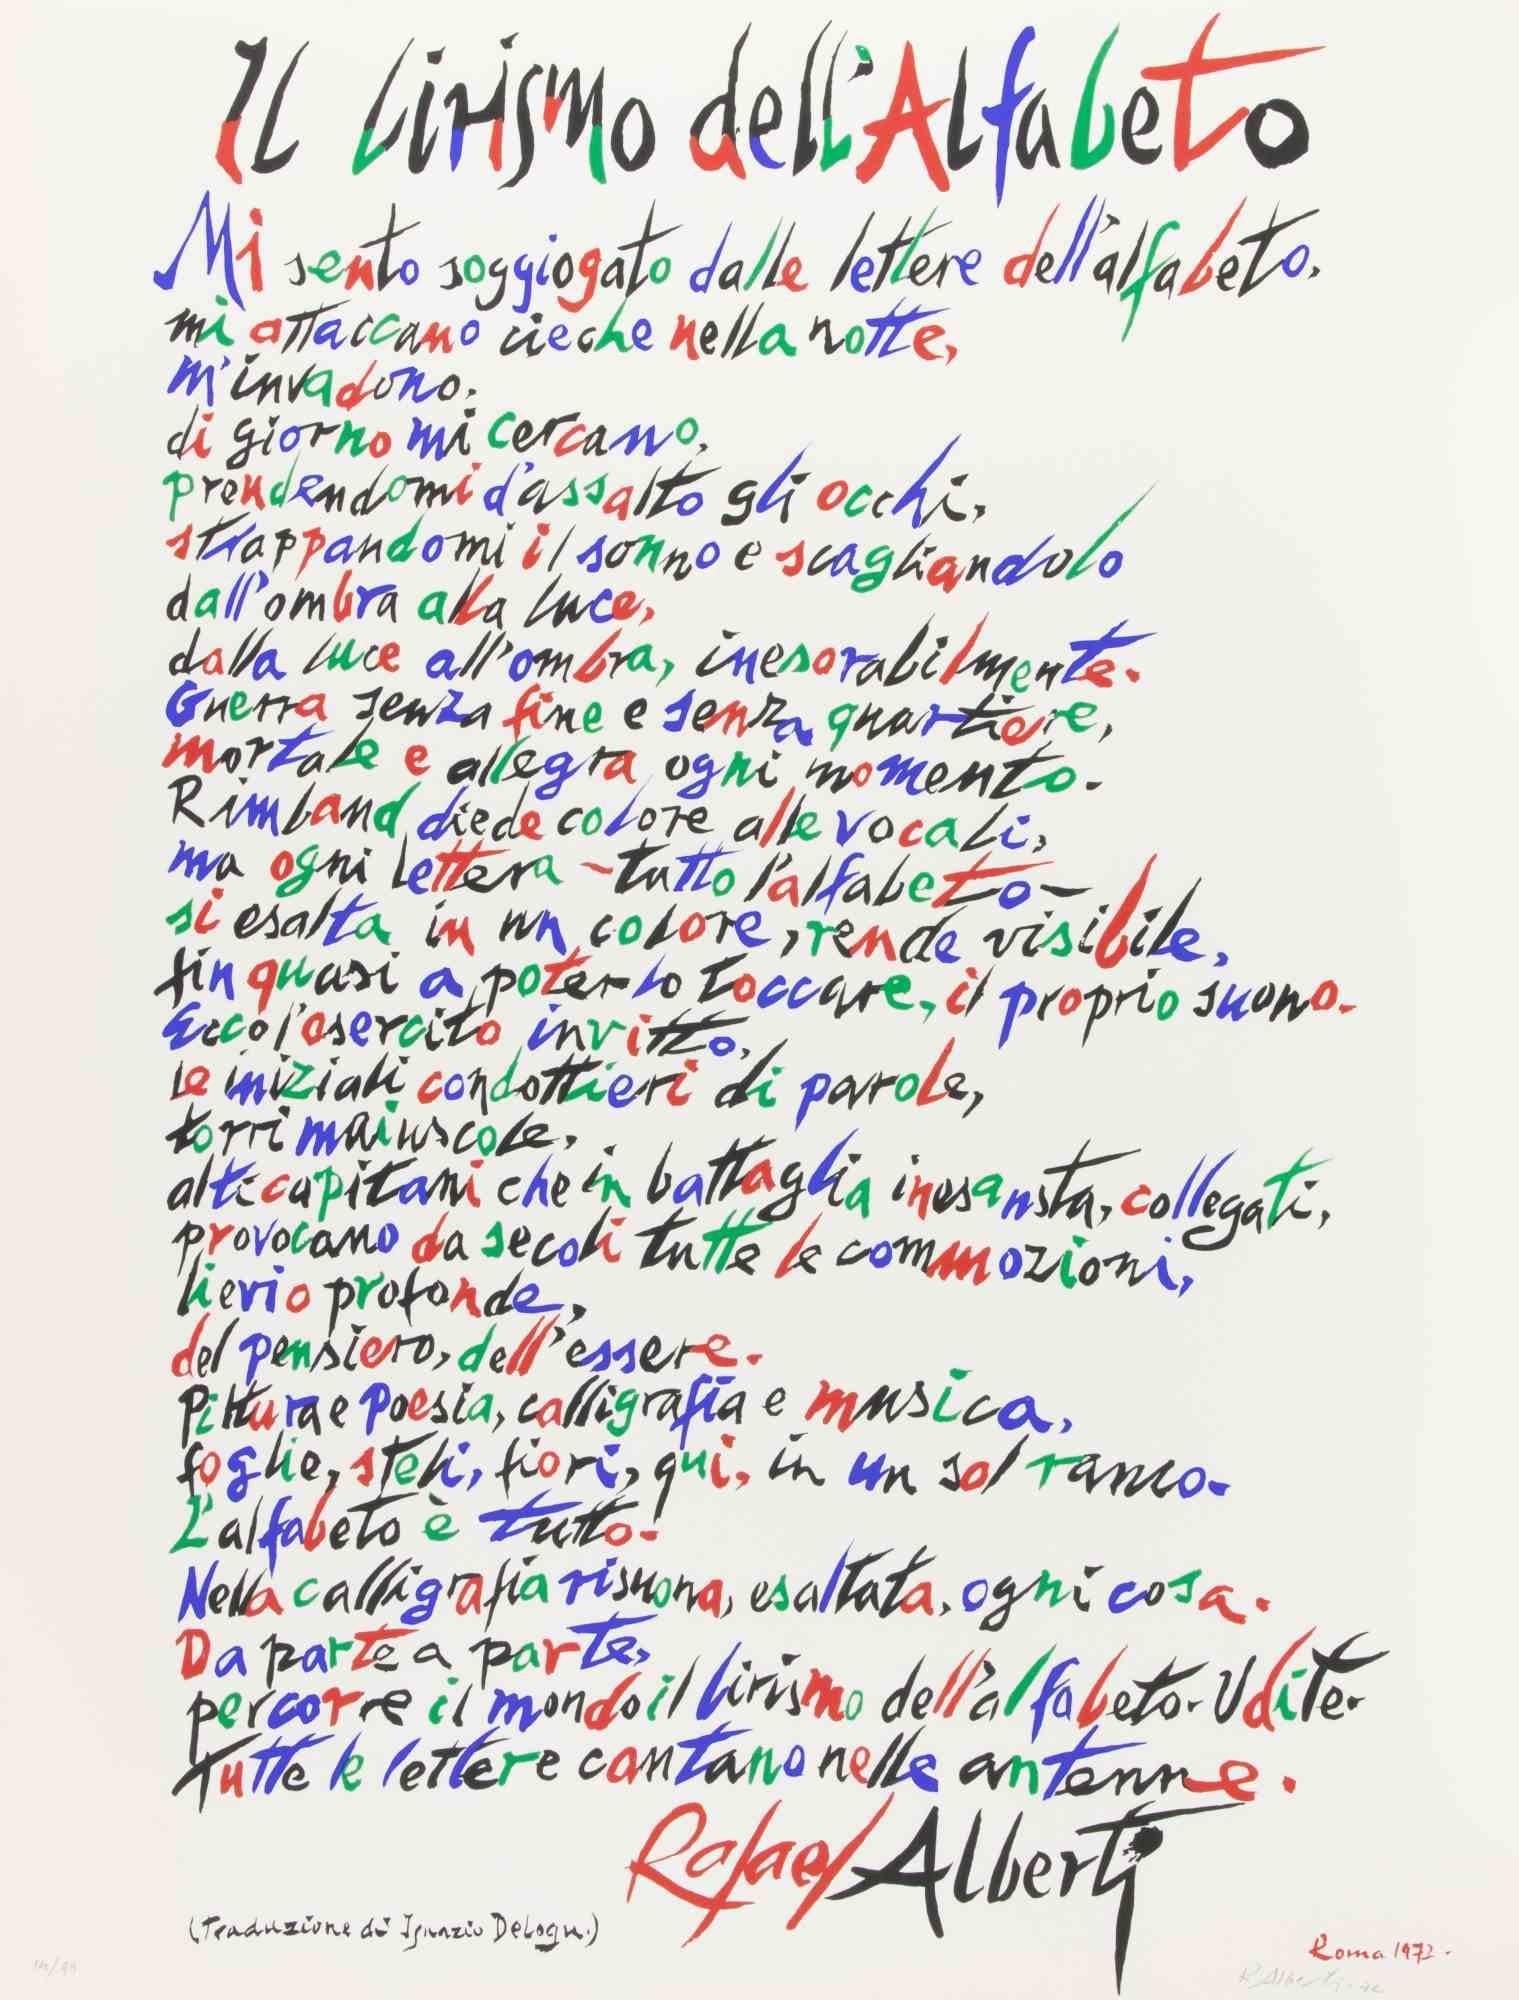 Il lirismo dell'Alfabeto
Mi sento soggiogato dalle lettere dell'alfabeto,
mi attaccano cieche nella notte,
m'invadono,
di giorno mi cercano,
prendendomi d'assalto gli occhi,
strappandomi il sonno e scagliandolo
dall'ombra alla luce,
dalla luce all'ombra, inesorabilmente.
Guerra senza fine e senza quartiere,
mortale e allegra ogni momento.
Rimbaud diede colore alle vocali,
ma ogni lettera - tutto l'alfabeto -
si esalta in un colore, rende visibile,
fin quasi a poterlo toccare, il proprio suono.
Ecco l'esercito invitto,
le iniziali condottieri di parole,
torri maiuscole,
alti capitani che in battaglia inesausta, collegati,
provocano da secoli tutte le commozioni,
lievi o profonde,
del pensiero, dell'essere.
Pittura e Poesia, calligrafia e musica,
foglie, steli, fiori, qui, in un sol ramo.
L'alfabeto è tutto.
Nella calligrafia risuona, esaltata, ogni cosa.
Da parte a parte,
percorre il mondo il lirismo dell'alfabeto. Udite.
Tutte le lettere cantano nelle antenne.
Rafael Alberti
(Traduzione di Ignazio Delogu.)
Roma 1972.
R. Alberti